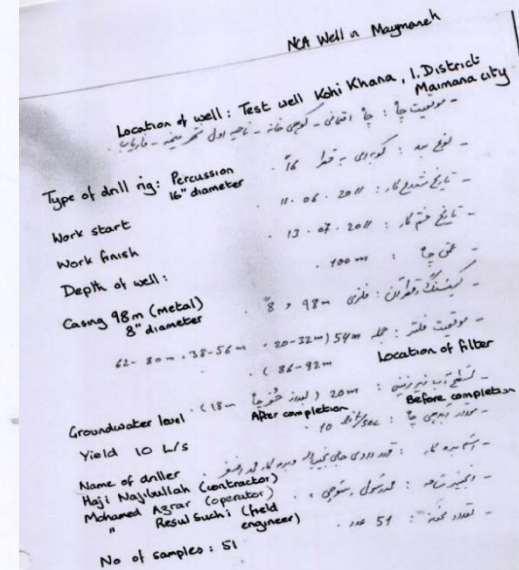 NCA Well in Maymaneh
Location of well: Test well Kohi Khana, 1. District
Maimana city
- موقعیت چاه : چاه امتحانی - کوهی خانه - ناحیه اول شهر میمنه - فاریاب
Type of drill rig: Percussion
16" diameter
- نوع برمه : کوبه ای به قطر 16"
Work start
- تاریخ شروع کار : 11.06.2011
Work finish
- تاریخ ختم کار : 13.07.2011
Depth of well:
- عمق چاه : 100m
Casing 98m (metal)
8" diameter
فلزی 98m و 8"
- موقعیت فلتر : جمله 54m (20-32m, 38-56m, 62-80m
86-92m)
Location of filter
Groundwater level
- سطح آب زیر زمینی : 20m ( 18m )
After completion
Before completion
Yield 10 L/s
چاه : 10
Name of driller
Haji Najibullah (contractor)
Mohamed Azrar (operator)
" Resul Suchi (field
engineer)
No of samples: 51
- تعداد نمونه : 51 عدد